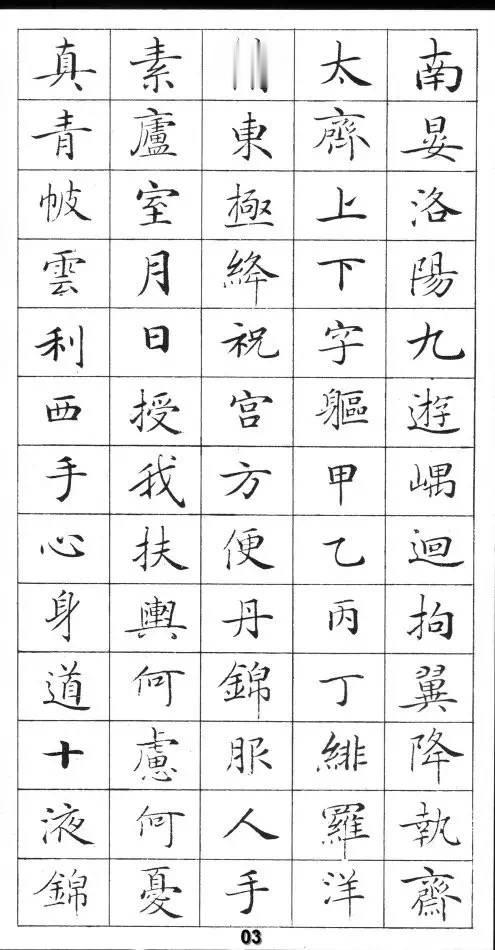 南晏洛陽九遊嵎迴拘翼降執齋
太齊上下字軀甲乙丙丁緋羅洋
東極絳祝宮方便丹錦服人手
素廬室月日授我扶輿何慮何憂
真青帔雲利西手心身道十液錦
03